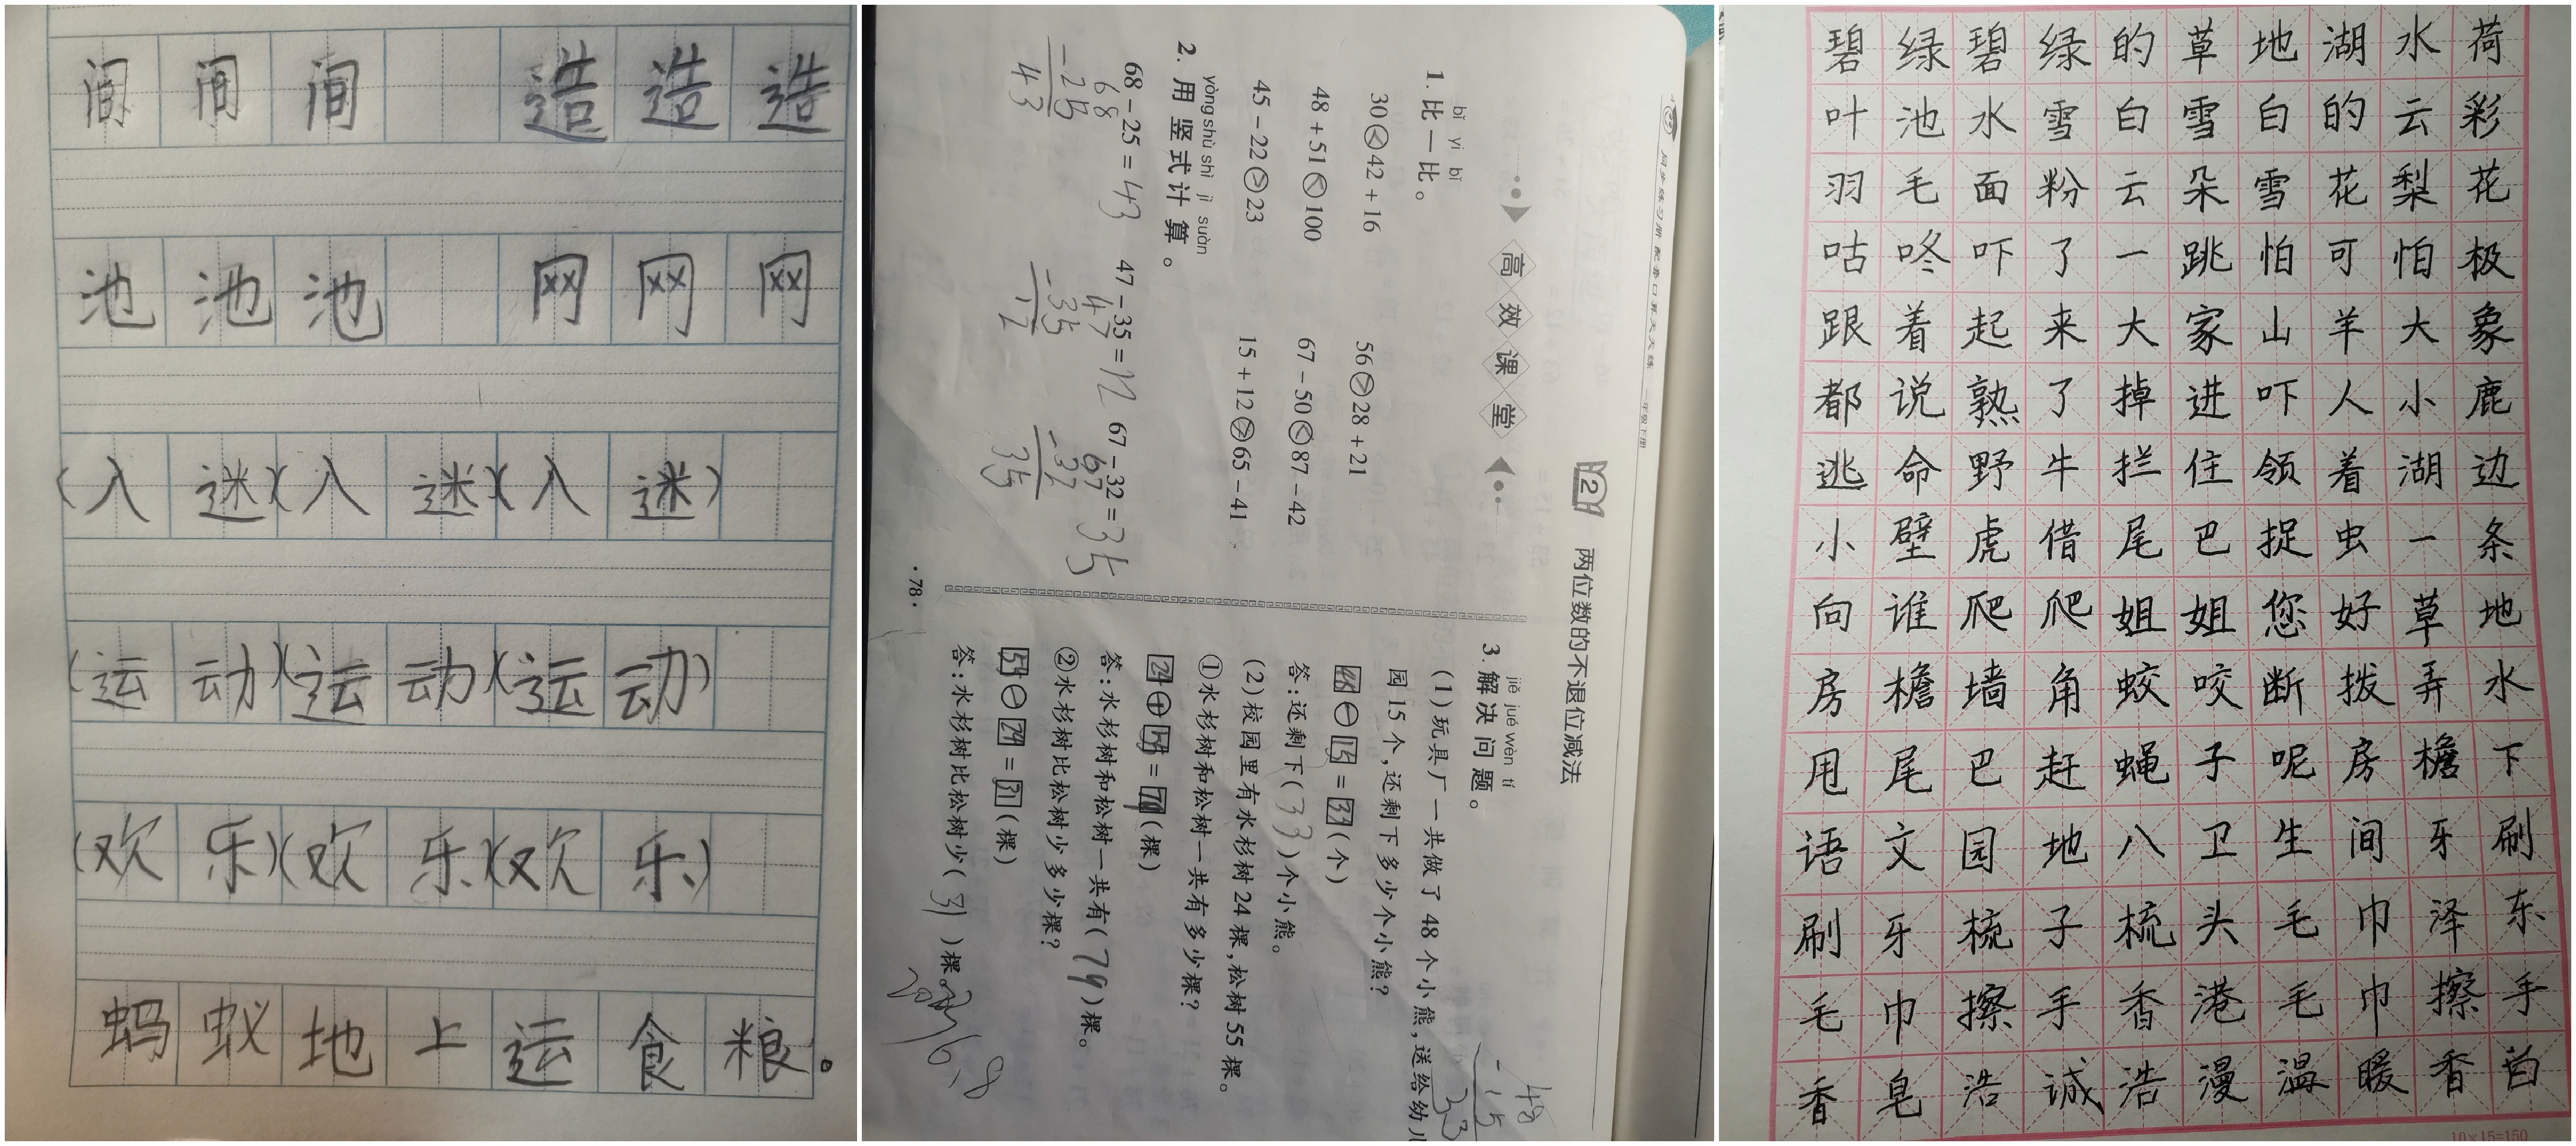 间间间 造造造
池池池 网网网
(入迷)(入迷)(入迷)
(运动)(运动)(运动)
(欢乐)(欢乐)(欢乐)
蚂蚁地上运食粮。
同步练习册 配套口算天天练 一年级下册
2 两位数的不退位减法
高效课堂
bǐ yi bǐ
1. 比一比。
30<42+16 56>28+21
48+51<100 67-50<87-42
45-22>23 15+12>65-41
yòng shù shì jì suàn
2. 用竖式计算。
68-25=43 47-35=12 67-32=35
68 47 67
-25 -35 -32
43 12 35
jiě jué wèn tí
3. 解决问题。
(1)玩具厂一共做了48个小熊,送给幼儿
园15个,还剩下多少个小熊?
48
-15
33
48-15=33(个)
答:还剩下(33)个小熊。
(2)校园里有水杉树24棵,松树55棵。
①水杉树和松树一共有多少棵?
24+55=79(棵)
答:水杉树和松树一共有(79)棵。
②水杉树比松树少多少棵?
55-24=31(棵)
答:水杉树比松树少(31)棵。
·78·
碧绿碧绿的草地湖水荷
叶池水雪白雪白的云彩
羽毛面粉云朵雪花梨花
咕咚吓了一跳怕可怕极
跟着起来大家山羊大象
都说熟了掉进吓人小鹿
逃命野牛拦住领着湖边
小壁虎借尾巴捉虫一条
向谁爬爬姐姐您好草地
房檐墙角蛟咬断拨弄水
甩尾巴赶蝇子呢房檐下
语文园地八卫生间牙刷
刷牙梳子梳头毛巾泽东
毛巾擦手香港毛巾擦手
香皂浩诚浩漫温暖香皂
10×15=150